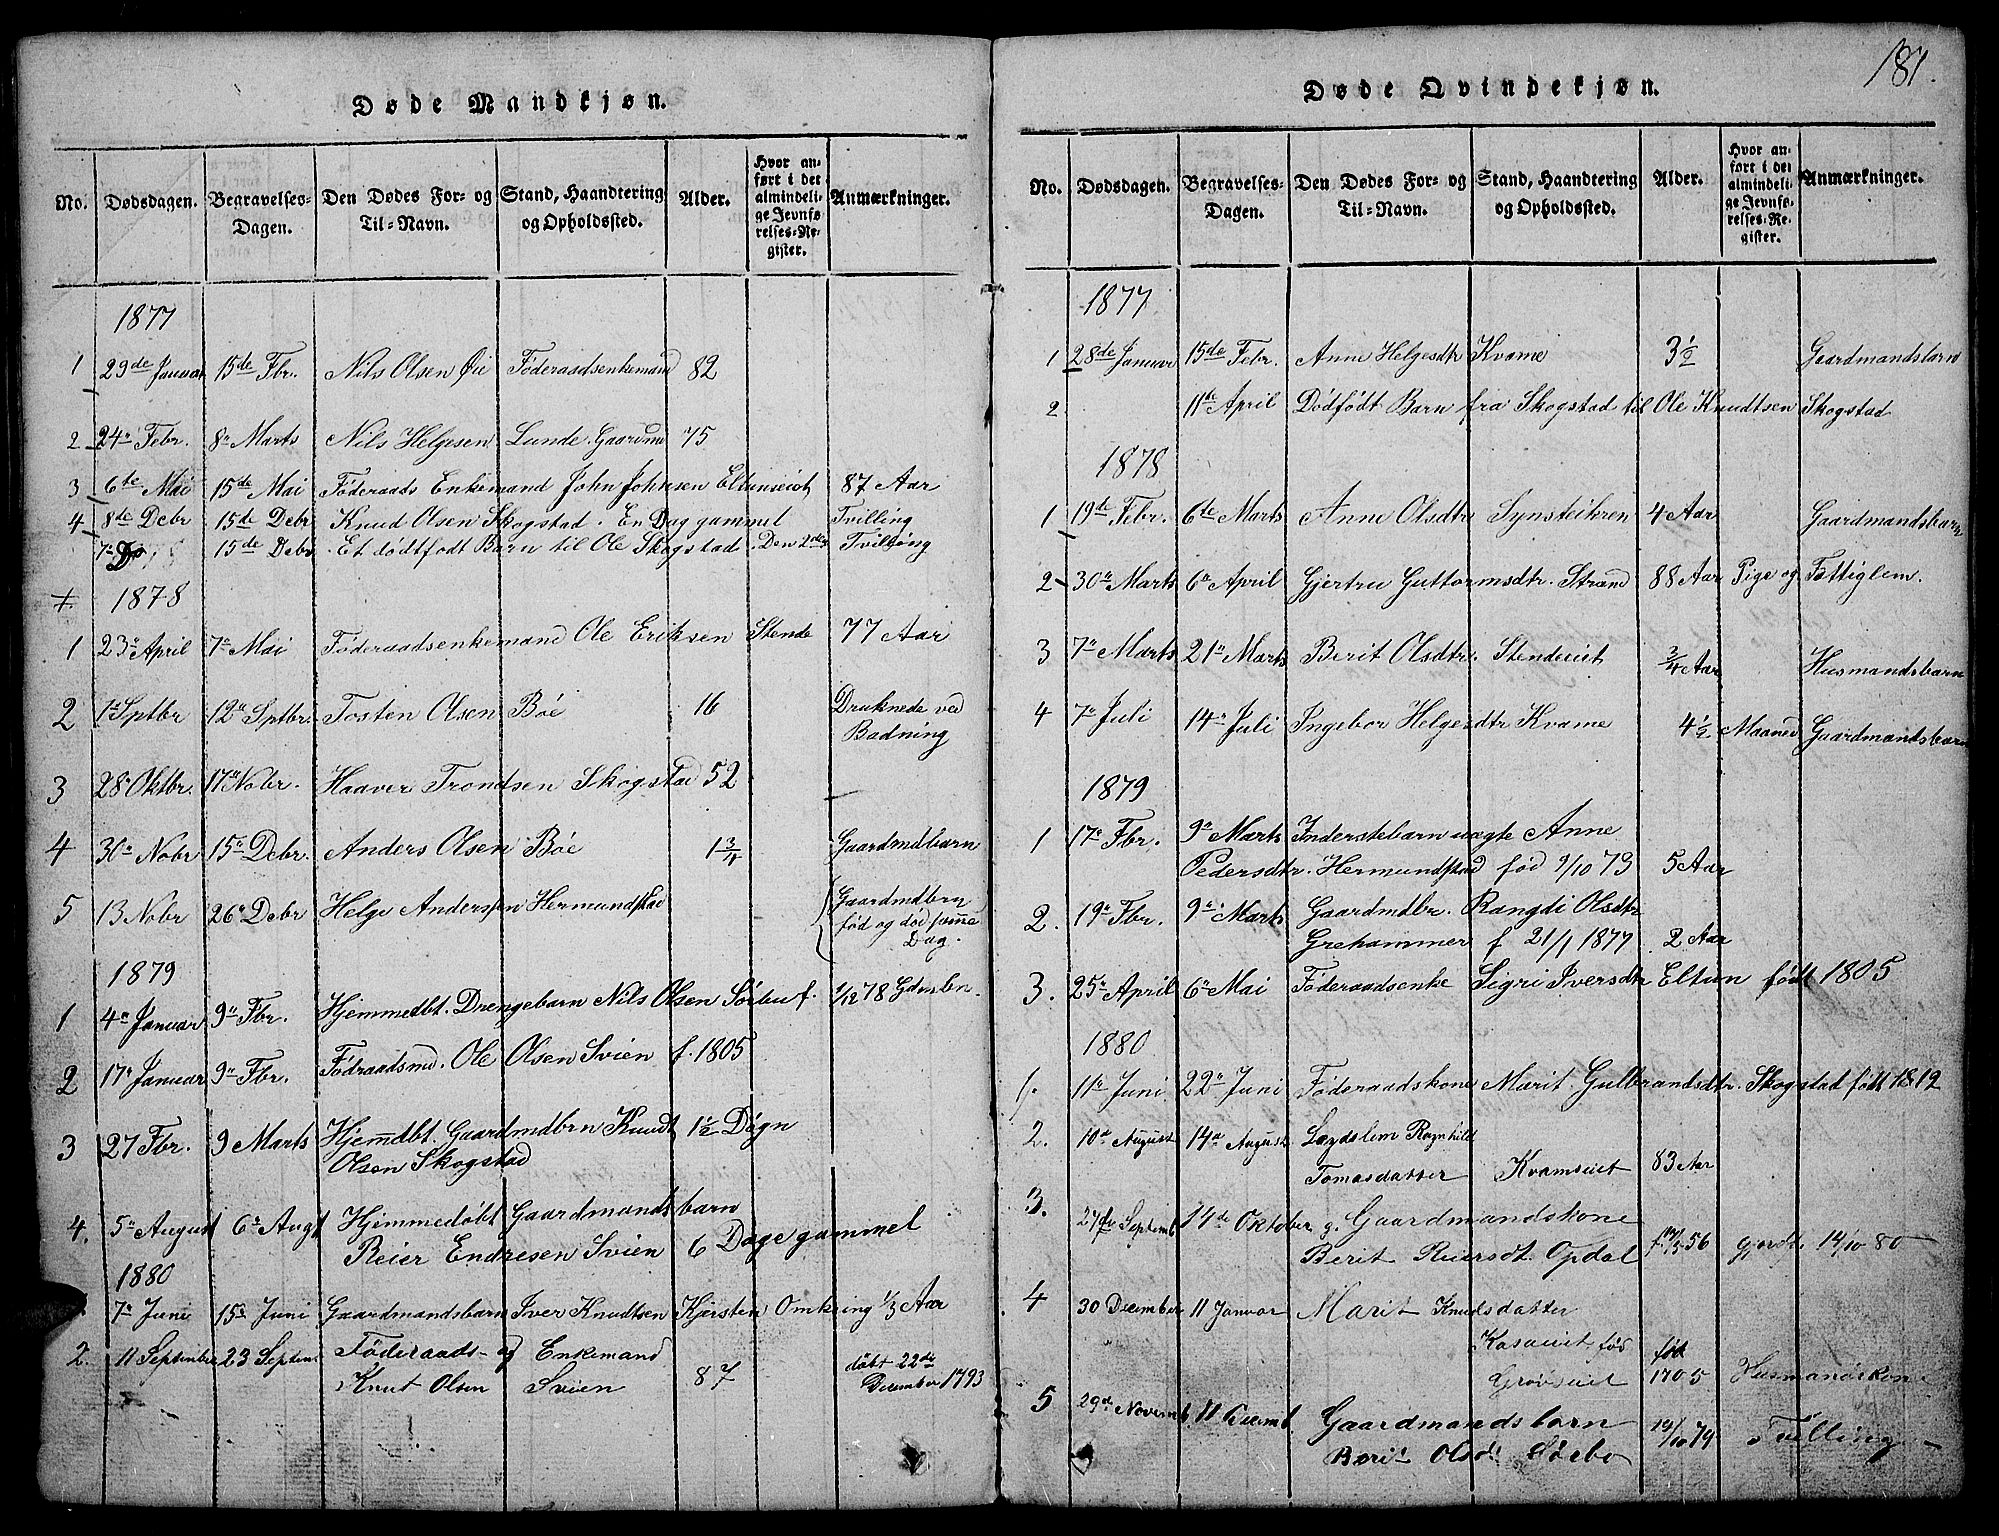 181.
Døde Mandkjøn.
No.
Dødsdagen.
Begravelses-
Dagen.
Den Dødes For- og
Til-Navn.
Stand, Haandtering
og Opholdssted.
Alder.
Hvor an-
ført i det
almindeli-
ge Jevnfø-
relses-Re-
gister.
Anmærkninger.
1877
1 29de Januar 15de Fbr. Nils Olsen Øie Føderaadsenkemand 82
2 24n Febr. 8n Marts Nils Helgesen Lunde Gaardmd 75
3 6te Mai 15de Mai Føderaads Enkemand John Johnsen Eltunseiet 87 Aar
4 8de Debr 15de Debr Knud Olsen Skogstad. En Dag gammel Tvilling
7n Do 15de Debr. Et dødtfødt Barn til Ole Skogstad. Den 2den Tvilling
1878
1 23n April 7n Mai Føderaadsenkemand Ole Eriksen Stende 77 Aar
2 1n Sptbr 12n Sptbr. Tosten Olsen Bøe 16 Druknede ved
Badning
3 28n Oktbr. 17n Nobr. Haaver Trondsen Skogstad 52
4 30n Nobr 15n Debr. Anders Olsen Bøe 1 3/4 Gaardmdbarn
5 13 Nobr 26n Debr Helge Andersen Hermundstad Gaardmdbrn
fød og død samme
Dag.
1879
1 4n Januar 9n Fbr. Hjemmedbt. Drengebarn Nils Olsen Sørbu f. 1/12 78 Gdmbn.
2 17n Januar 9n Fbr. Føderaadsmd. Ole Olsen Svien f. 1805
3 27 Fbr. 9 Marts Hjemdbt. Gaardmdbrn Knudt 1 1/2 Døgn
Olsen Skogstad
4. 5n August 6n Augt Hjemmedøbt Gaardmandsbarn
Reier Endresen Svien 6 Dage gammel
1880
7n Juni 15n Juni Gaardmandsbarn Iver Knudtsen Kjørsten Omkring 1/3 Aar
2. 11 September 23 Septem Føderaads- og Enkemand
Knut Olsen Svien 87 døbt 22de
December 1793
Døde Qvindekjøn.
No.
Dødsdagen.
Begravelses-
Dagen.
Den Dødes For- og
Til-Navn.
Stand, Haandtering
og Opholdssted.
Alder.
Hvor an-
ført i det
almindeli-
ge Jevnfø-
relses-Re-
gister.
Anmærkninger.
1877
1 28de Januar 15de Febr. Anne Helgesdtr Kvame 3 1/2 Gaardmandsbarn
2 11te April Dødfødt Barn fra Skogstad til Ole Knudtsen Skogstad
1878
1 19de Febr. 6te Marts Anne Olsdtr Synsteikren 4 Aar Gaardmandsbarn
2 30n Marts 6n April Gjertru Guttormsdtr. Strand 88 Aar Pige og Fattiglem.
3 7n Marts 21n Marts Berit Olsdtr. Stendeeiet 3/4 Aar Husmandsbarn
4 7n Juli 14n Juli Ingebor Helgesdtr Kvame 4 1/2 Maaned Gaardmandsbarn
1879
1 17n Fbr. 9n Marts Inderstebarn uægte Anne
Pedersdtr. Hermundstad fød 9/10 73 5 Aar
2. 19n Fbr. 9n Marts Gaardmdbr. Rangdi Olsdtr
Grehammer f 21/1 1877 2 Aar
3. 25n April 6n Mai Føderaadsenke Sigri Iversdtr Eltun født 1805
1880
1. 11n Juni 22n Juni Føderaadskone Marit Gulbrandsdtr. Skogstad født 1812
2. 10n August 14n August Lægdslem Ragnhild
Tomasdatter Kvamseiet 83 Aar
3. 27de Septemb 14de Oktober g. Gaardmandskone
Berit Reiersdt. Opdal 56 14/10 80
4 30 December 11 Januar Marit Knudsdatter
fød
Grøvseiet født 1705 Husmandskone
5 29de Novemb 11 Decemb. Gaardmandsbarn
Berit Olsd. Sørbo 19/10 79 Tvilling